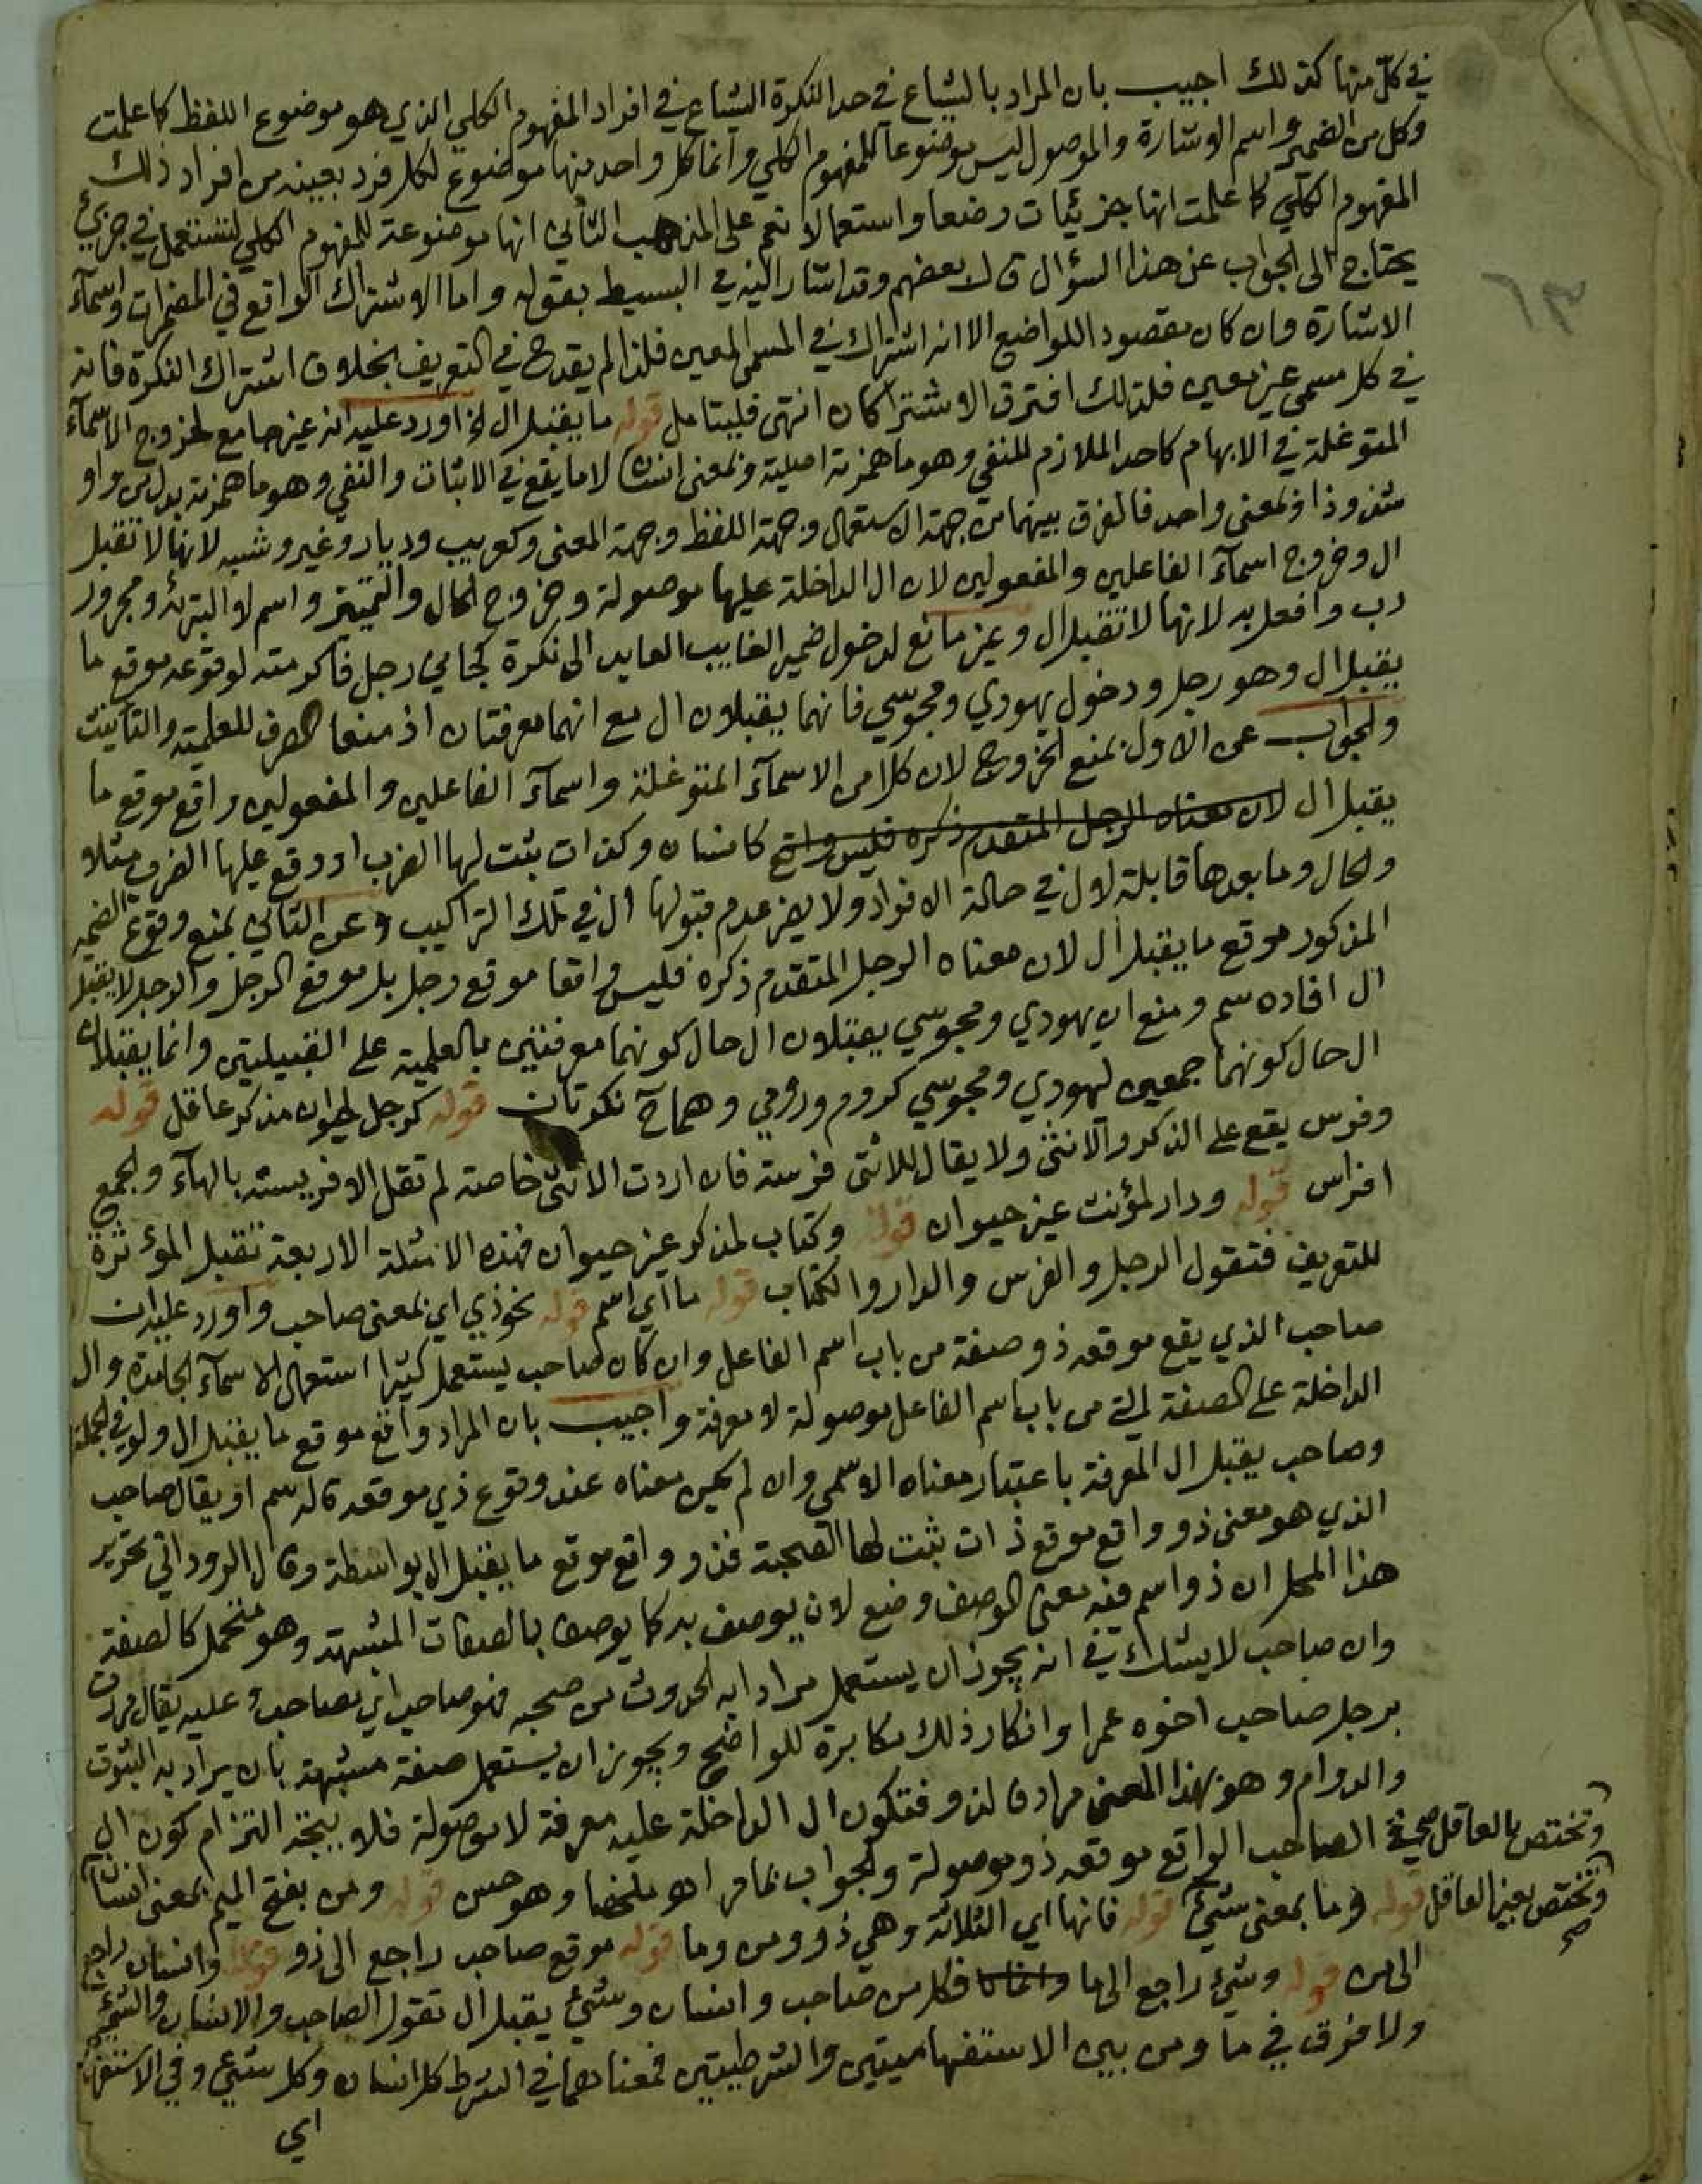 في كل منها كذلك اجيب بان المراد بالشياع في حد النكرة الشياع في افراد المفهوم الكلي الذي هو موضوع اللفظ كما علمت
وكل من الضمير واسم الاشارة والموصول ليس موضوعا للمفهوم الكلي وانما كل واحد منها موضوع لكل فرد بعينه من افراد ذلك
المفهوم الكلي كما علمت انها جزئيات وضعا واستعمالا نعم على المذهب الثاني انها موضوعة للمفهوم الكلي لتستعمل في جزئي
يحتاج الى الجواب عن هذا السؤال قال بعضهم وقد اشار اليه في البسيط بقوله واما الاشتراك الواقع في المضمرات واسمآء
الاشارة وان كان مقصود اللواضع الا انه اشتراك في المسمى المعين فلذا لم يقدح في التعريف بخلاف اشتراك النكرة فانه
في كل مسمى غير معين فلذلك افترق الاشتراكان انتهى فليتامل قوله ما يقبل ال الخ اورد عليه انه غير جامع لخروج الاسمآء
المتوغلة في الابهام كاحد الملازم للنفي وهو ما همزته اصلية وبمعنى انسان لا ما يقع في الاثبات والنفي وهو ما همزته بدل من واو
شذوذا وبمعنى واحد فالفرق بينهما من جهة الاستعمال وجهة اللفظ وجهة المعنى وكعريب وديار وغير وشبه لانها لا تقبل
ال وخروج اسمآء الفاعلين والمفعولين لان ال الداخلة عليها موصولة وخروج الحال والتمييز واسم لا التبرئة ومجرور
رب وافعل به لانها لا تقبل ال وغير مانع لدخول ضمير الغايب العايد الى نكرة كجاءني رجل فاكرمته لوقوعه موقع ما
يقبل ال وهو رجل ودخول يهودي ومجوسي فانهما يقبلان ال مع انهما معرفتان اذ منعا الصرف للعلمية والتانيث
والجواب عن الاول بمنع الخروج لان كلا من الاسمآء المتوغلة واسمآء الفاعلين والمفعولين واقع موقع ما
يقبل ال لان معناه الرجل المتقدم ذكره فليس واقع كانسان وكذات ثبت لها الضرب او وقع عليها الضرب مثلا
والحال وما بعدها قابلة لال في حالة الافراد ولا يضر عدم قبولها ال في تلك التراكيب وعن الثاني بمنع وقوع الضمير
المذكور موقع ما يقبل ال لان معناه الرجل المتقدم ذكره فليس واقعا موقع رجل بل موقع الرجل والرجل لا يقبل
ال افاده سم ومنع ان يهودي ومجوسي يقبلان ال حال كونهما معرفتين بالعلمية على القبيلتين وانما يقبلان
ال حال كونهما جمعين ليهودي ومجوسي كروم ورومي وهما ح نكرتان قوله كرجل لحيوان مذكر عاقل قوله
وفرس يقع على الذكر والانثى ولا يقال للانثى فرسة فان اردت الانثى خاصة لم تقل الا فريسة بالهآء والجمع
افراس قوله ودار لمؤنث غير حيوان قوله وكتاب لمذكر غير حيوان فهذه الامثلة الاربعة تقبل المؤثرة
للتعريف فتقول الرجل والفرس والدار والكتاب قوله ما اي اسم قوله نحو ذي اي بمعنى صاحب واورد عليه ان
صاحب الذي يقع موقعه ذو صفة من باب اسم الفاعل وان كان صاحب يستعمل كثيرا استعمال الاسمآء الجامدة وال
الداخلة على الصفة التي من باب اسم الفاعل موصولة لا معرفة واجيب بان المراد واقع موقع ما يقبل ال ولو في الجملة
وصاحب يقبل ال المعرفة باعتبار معناه الاسمي وان لم يكن معناه عند وقوع ذي موقعه قاله سم او يقال صاحب
الذي هو معنى ذو واقع موقع ذات ثبت لها الصحبة فذو واقع موقع ما يقبل ال بواسطة وقال الروداني تحرير
هذا المحل ان ذو اسم فيه معنى الوصف وضع لان يوصف به كما يوصف بالصفات المشبهة وهو متحمل كالصفة
وان صاحب لا يشك في انه يجوز ان يستعمل مرادا به الحدوث من صحبه فهو صاحب اي مصاحب وعليه يقال مررت
برجل صاحب اخوه عمرا وانكار ذلك مكابرة للواضح ويجوز ان يستعمل صفة مشبهة بان يراد به الثبوت
والدوام وهو بهذا المعنى مرادف لذو فتكون ال الداخلة عليه معرفة لا موصولة فلا يتجه التزام كون ال
في الصاحب الواقع موقعه ذو موصولة والجواب بما مر اه ملخصا وهو حسن قوله ومن بفتح الميم بمعنى انسان
وتختص بالعاقل صح
قوله وما بمعنى شيء قوله فانها اي الثلاثة وهي ذو ومن وما قوله موقع صاحب راجع الى ذو قوله وانسان راجع
وتختص بغير العاقل صح
الى من قوله وشيء راجع الى ما وانما كا فكل من صاحب وانسان وشيء يقبل ال تقول الصاحب والانسان والشيء
ولا فرق في ما ومن بين الاستفهاميتين والشرطيتين فمعناهما في الشرط كل انسان وكل شيء وفي الاستفهام
اي